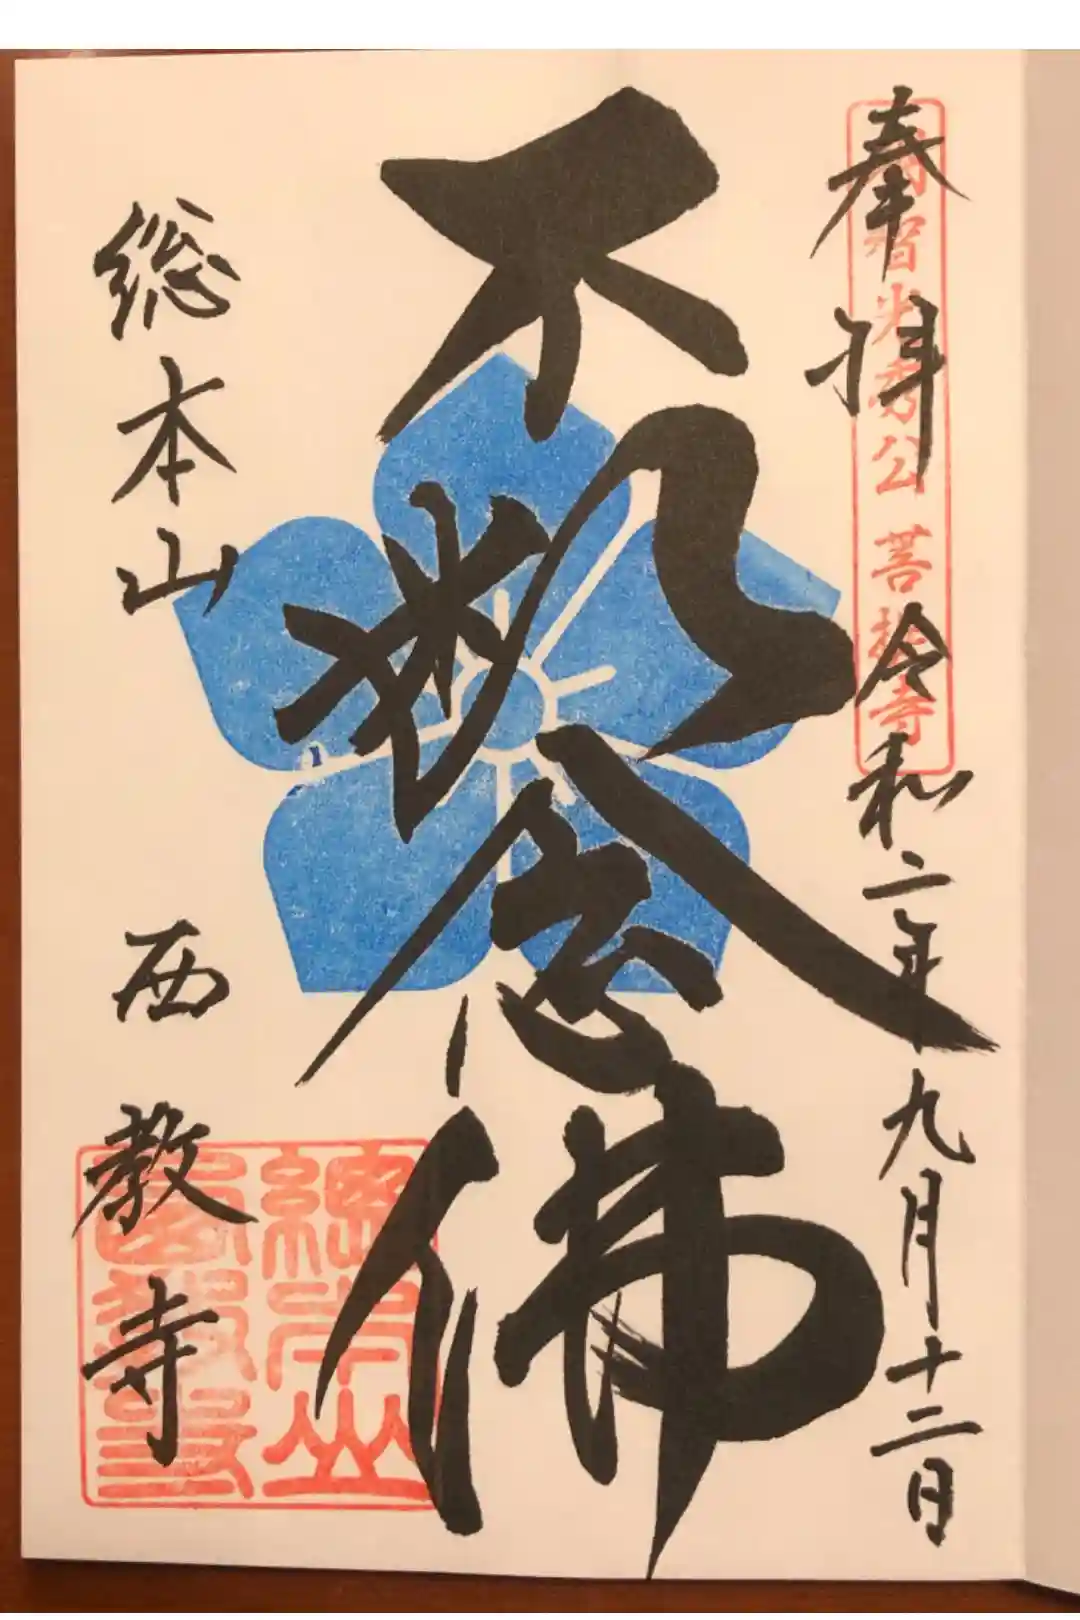 奉拝
明智光秀公菩提寺
令和二年九月十二日
不断念佛
総本山
西教寺
總本山
西教寺